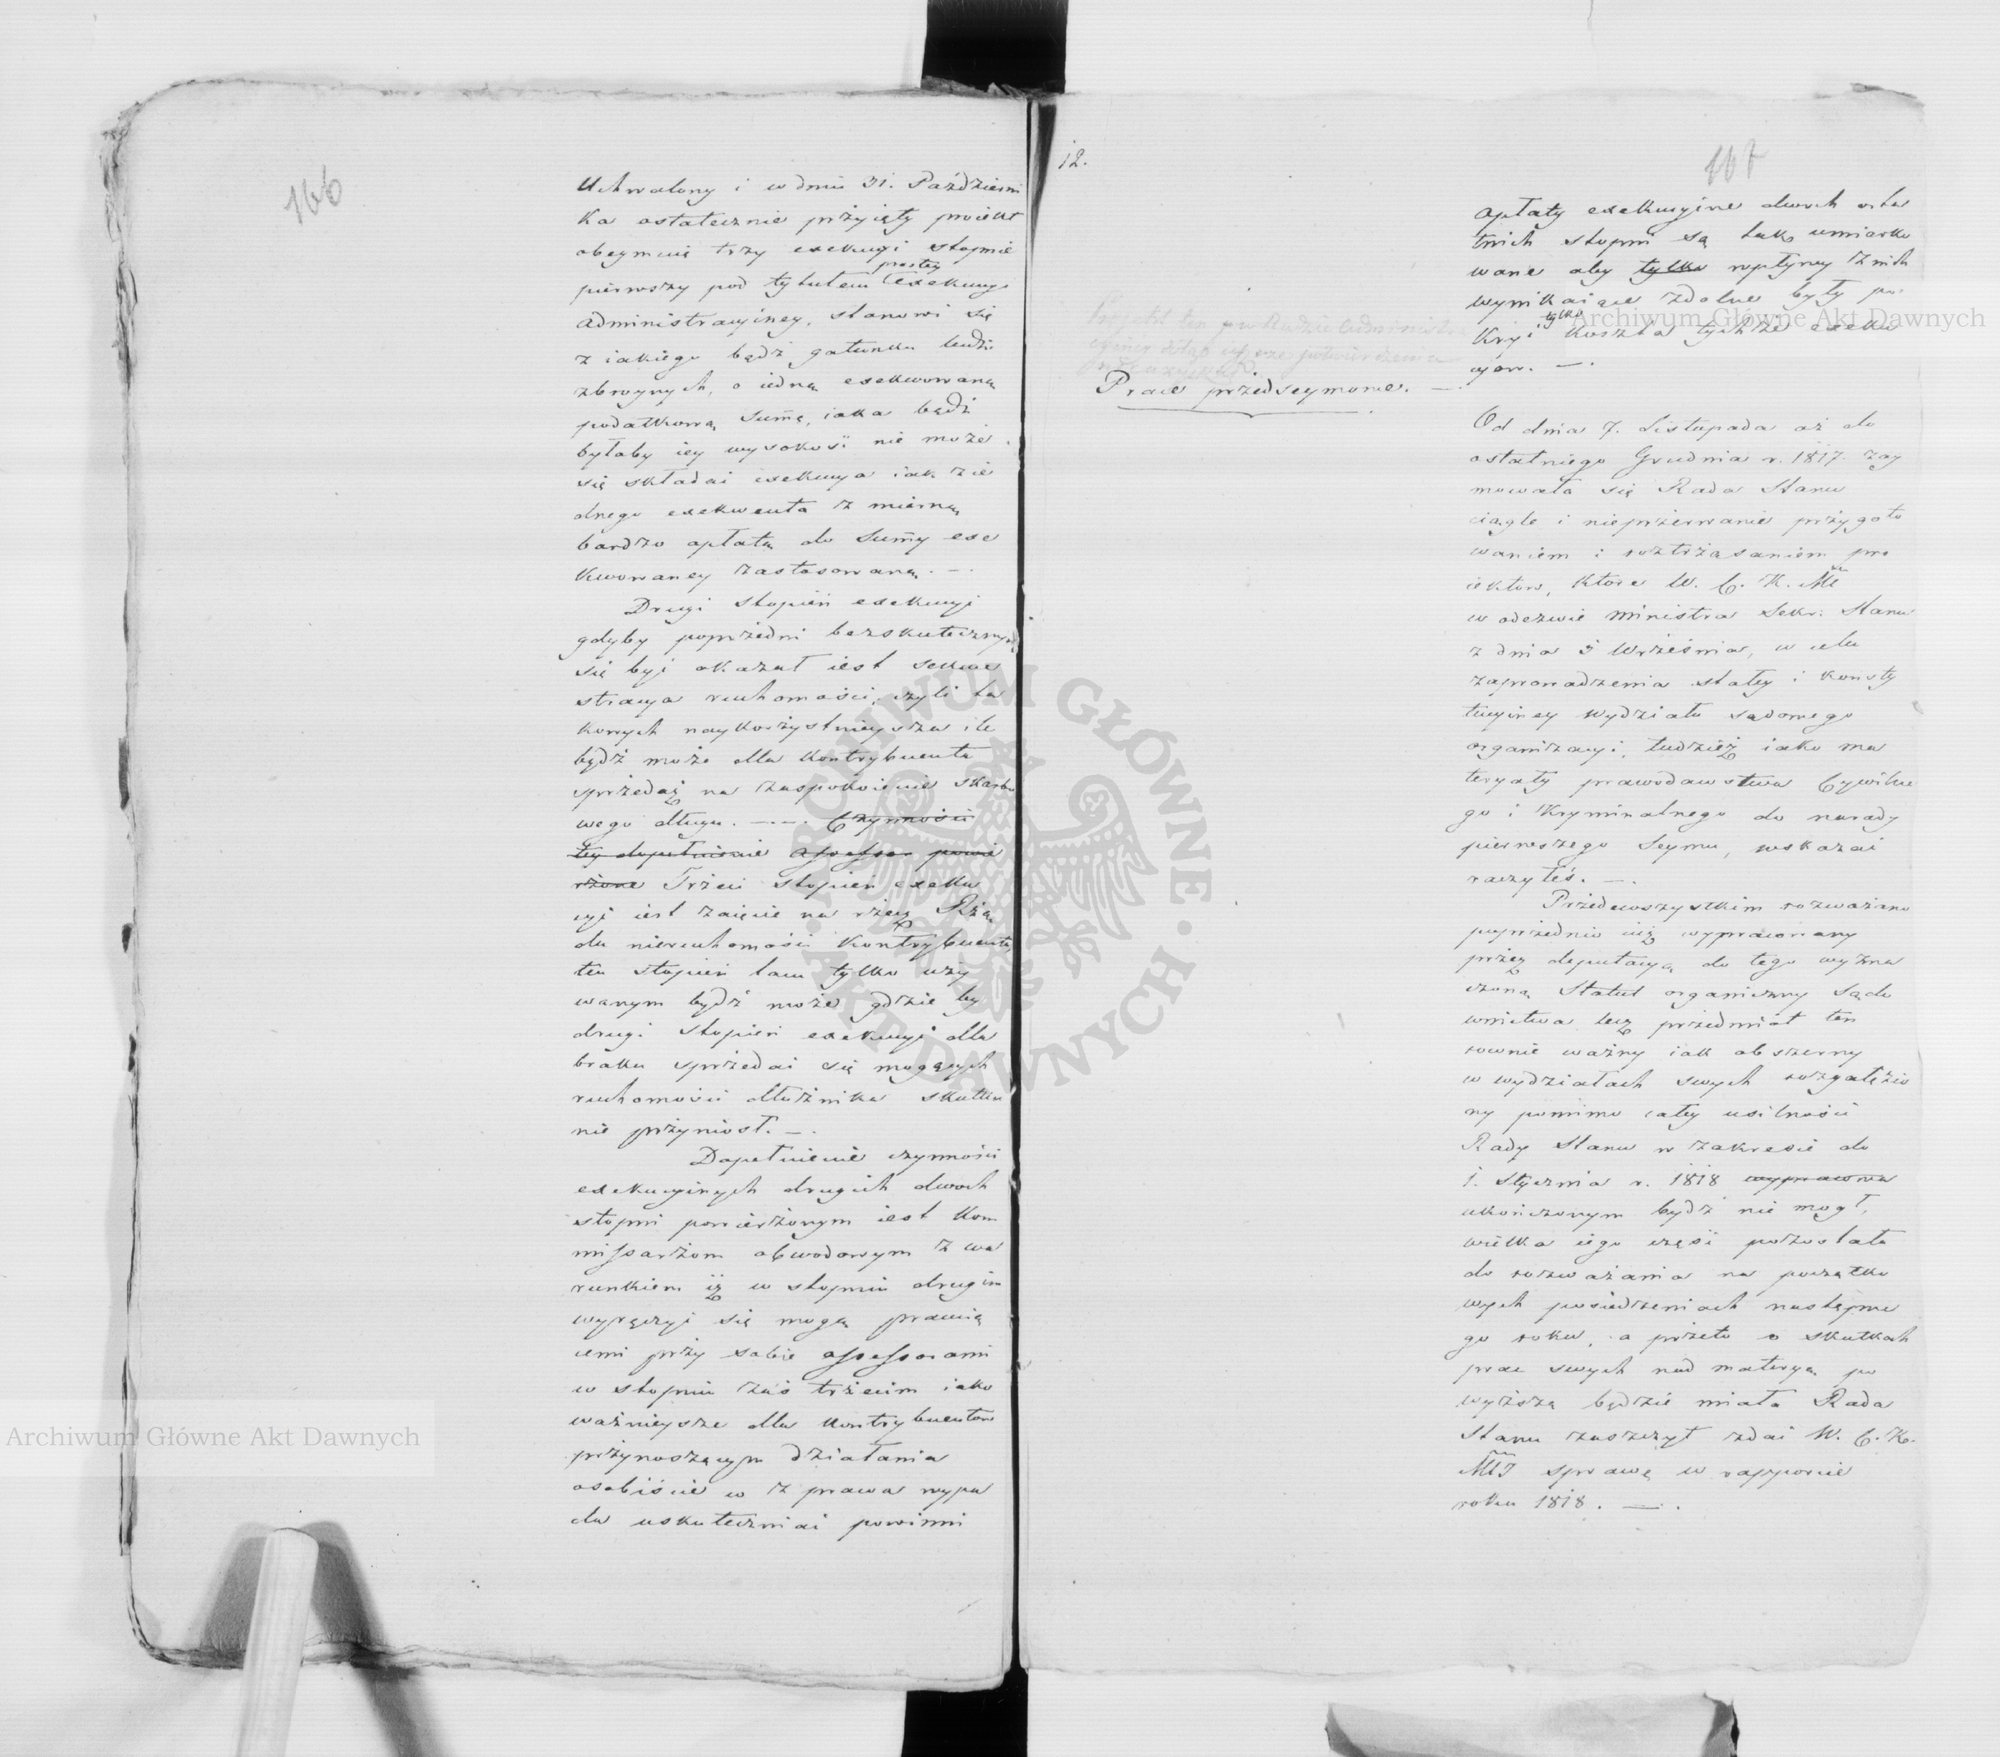 166
Uchwalony i w dniu 31. Październi
ka ostatecznie przyięty proiekt
obeymuie trzy exekucyi stopnie
pierwszy pod tytułem prostey exekucyi
administracyiney, stanowi się
z iakiego bądź gatunku ludzi
zbroynych, o iedną exekwowaną
podatkową summę, iaka bądź
byłaby iey wysokość nie może
się składać exekucya iak z ie
dnego exekwenta z mierną
bardzo opłatą do Summy exe
kwowaney zastosowaną. —.
Drugi stopień exekucyi
gdyby poprzedni bezskutecznym
się być okazał iest sekwe
stracya ruchomości, czyli ta
kowych naykorzystnieysza ile
bydź może dla kontrybuenta
sprzedaż na zaspokoienie skarbo
wego długu. —. — Czynności
tey dopełnienie assessor powie
rzone Trzeci stopień exeku
cyi iest zaięcie na rzecz Rzą
du nieruchomości kontrybuenta,
ten stopień tam tylko uży
wanym bydź może gdzie by
drugi stopień exekucyi dla
braku sprzedać się mogących
ruchomości dłużnika skutku
nie przyniosł. —.
Dopełnienie czynności
exekucyinych drugich dwoch
stopni powierzonym iest Kom
missarzom obwodowym z wa
runkiem iż w stopniu drugim
wyręczyć się mogą pracuią
cemi przy sobie assessorami
w stopniu zaś trzecim iako
ważnieysze dla kontrybuentow
przynoszącym działania
osobiście w z prawa wypa
du uskuteczniać powinni
12.
167
Projekt ten po Radzie Administra
cyiney
Prace przedseymowe. —
opłaty exekucyine dwoch osta
tnich stopni są tak umiarko
wane aby tylko wpływy z nich
wynikaiące zdolne były po
kryć tylko koszta tychże exeku
cyow. —.
Od dnia 7. Listopada aż do
ostatniego Grudnia r. 1817. zay
mowała się Rada Stanu
ciągle i nieprzerwanie przygoto
waniem i roztrząsaniem pro
iektow, ktore W. C. K. Mć
w odezwie Ministra Sekr: Stanu
z dnia 3 Września, w celu
zaprowadzenia stałey i konsty
tucyiney Wydziału sądowego
organizacyi, tudzież iako ma
teryały prawodawstwa Cywilne
go i Kryminalnego do narady
pierwszego Seymu, wskazać
raczyłeś. —.
Przedewszystkim rozważano
poprzednio iuż wypracowany
przez deputacyą do tego wyzna
czoną Statut organiczny Sądo
wnictwa lecz przedmiot ten
rownie ważny iak obszerny
w wydziałach swych rozgałęzio
ny pomimo całey usilności
Rady Stanu w zakresie do
1. Stycznia r. 1818 wypracowa
ukończonym bydź nie mogł,
wielka iego część pozostała
do rozważania na początko
wych posiedzeniach następne
go roku, a przeto o skutkach
prac swych nad materyą po
wyższą będzie miała Rada
Stanu zaszczyt zdać W. C. K.
Mci sprawę w rapporcie
roku 1818. —.
Archiwum Główne Akt Dawnych
Archiwum Główne Akt Dawnych
ARCHIWUM GŁÓWNE · AKT DAWNYCH ·